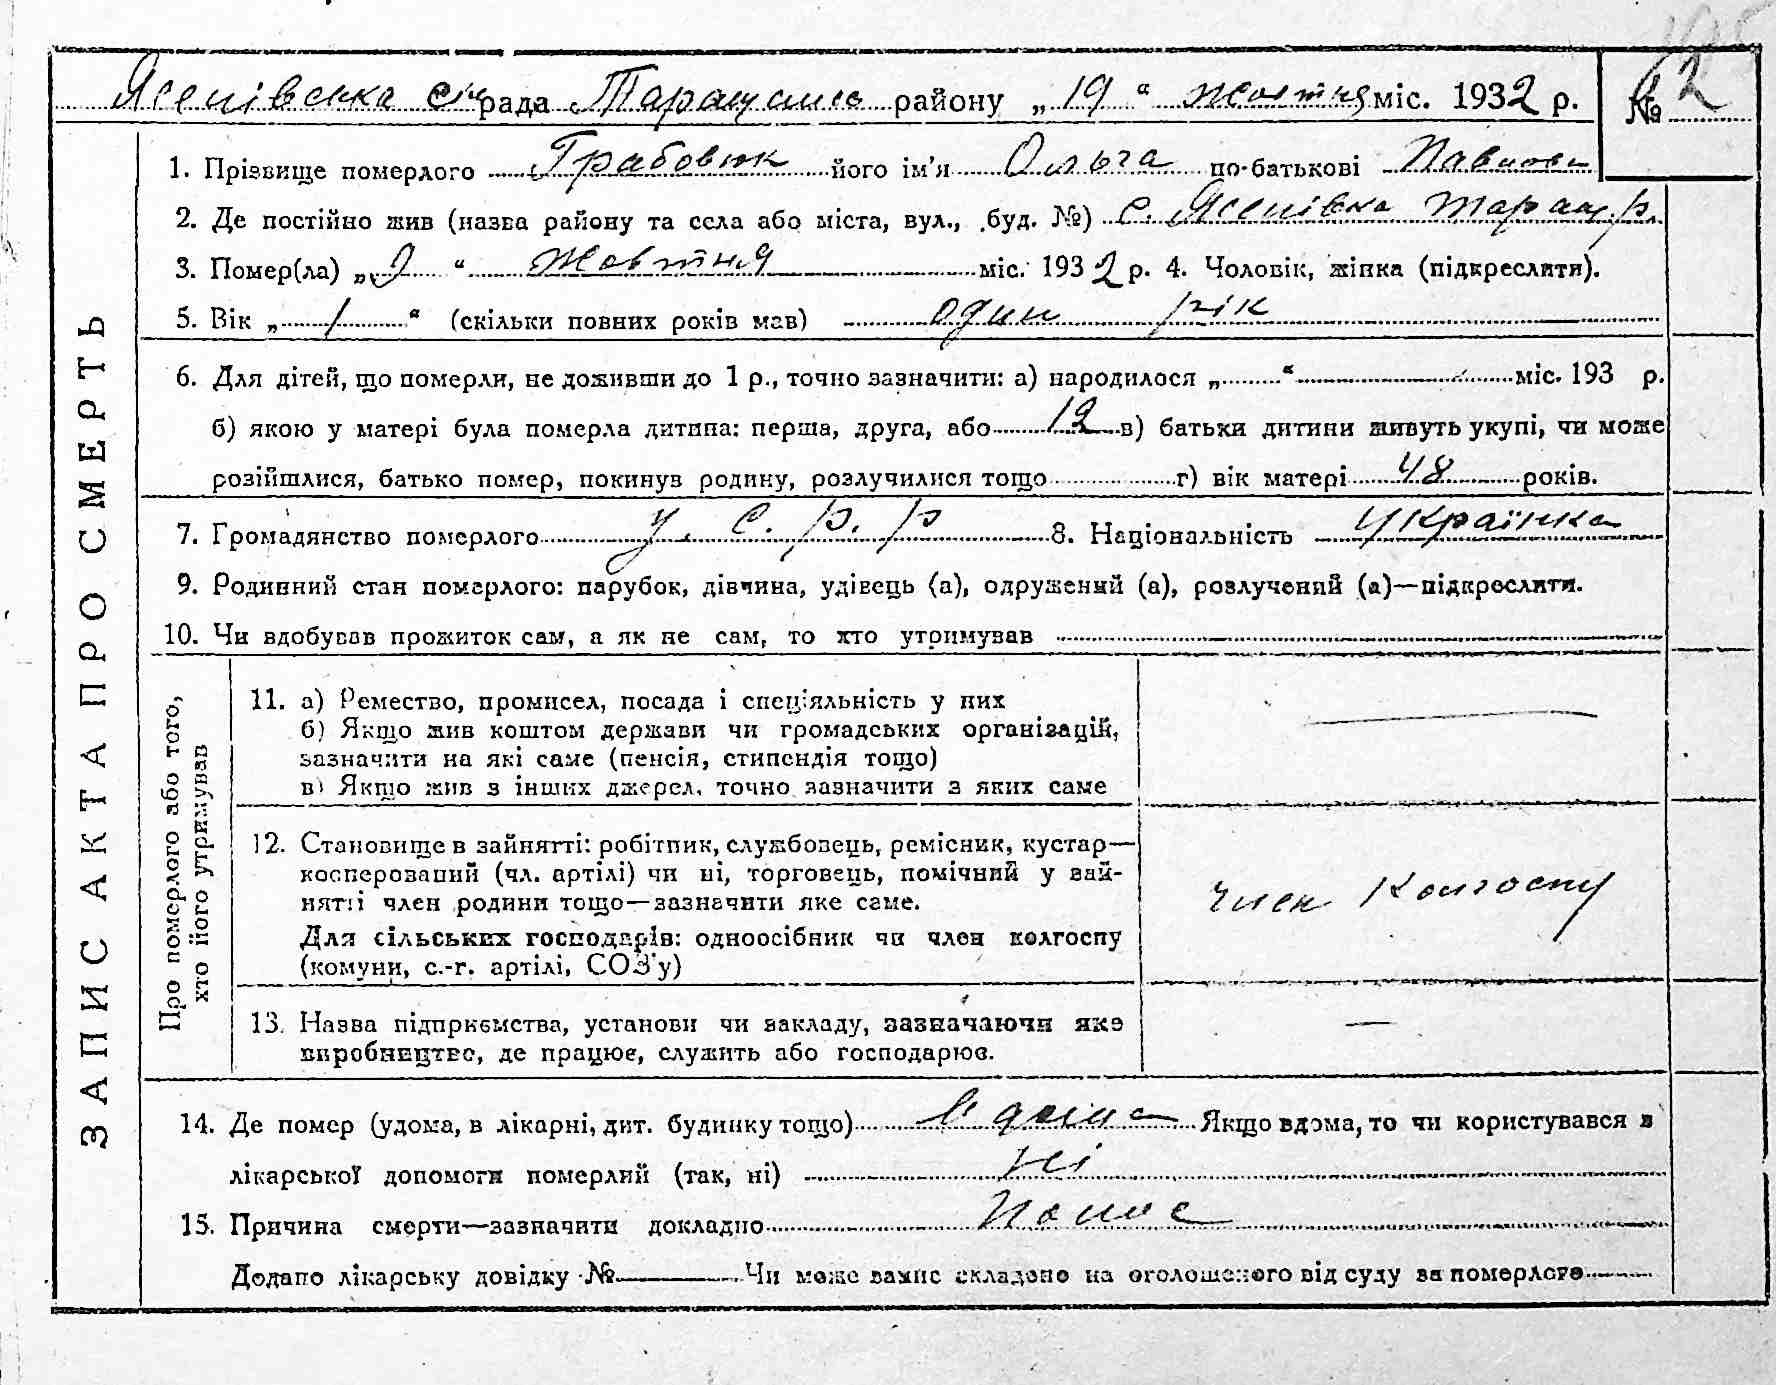 Ясенівська сіл рада Таращансь району „19“ жовтня міс. 1932 р. № 62
1. Прізвище померлого Грабовик його ім'я Ольга по-батькові Павлови
2. Де постійно жив (назва району та села або міста, вул., буд. №) с. Ясенівка Таращ. р.
3. Помер(ла) „9“ жовтня міс. 1932 р. 4. Чоловік, жінка (підкреслити).
5. Вік „1“ (скільки повних років мав) один рік
6. Для дітей, що померли, не доживши до 1 р., точно зазначити: а) народилося „ “ міс. 193 р.
б) якою у матері була померла дитина: перша, друга, або 12 в) батьки дитини живуть укупі, чи може
розійшлися, батько помер, покинув родину, розлучилися тощо г) вік матері 48 років.
7. Громадянство померлого У. С. Р. Р 8. Національність Українка
9. Родинний стан померлого: парубок, дівчина, удівець (а), одружений (а), розлучений (а)—підкреслити.
10. Чи здобував прожиток сам, а як не сам, то хто утримував
ЗАПИС АКТА ПРО СМЕРТЬ
Про померлого або того,
хто його утримував
11. а) Ремество, промисел, посада і спеціяльність у них
б) Якщо жив коштом держави чи громадських організацій,
зазначити на які саме (пенсія, стипендія тощо)
в) Якщо жив з інших джерел, точно зазначити з яких саме
12. Становище в зайнятті: робітник, службовець, ремісник, кустар—
кооперований (чл. артілі) чи ні, торговець, помічний у зай-
нятті член родини тощо—зазначити яке саме.
Для сільських господарів: одноосібник чи член колгоспу
(комуни, с.-г. артілі, СОЗ'у)
член Колгоспу
13. Назва підприємства, установи чи закладу, зазначаючи яке
виробництво, де працює, служить або господарює.
—
14. Де помер (удома, в лікарні, дит. будинку тощо) вдома Якщо вдома, то чи користувався з
лікарської допомоги померлий (так, ні) Ні
15. Причина смерти—зазначити докладно Понос
Додано лікарську довідку № Чи може запис складено на оголошеного від суду за померлого